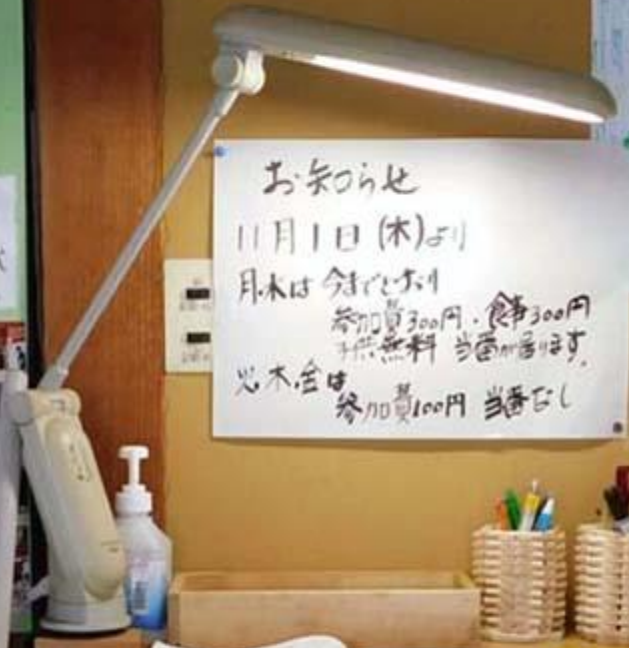 お知らせ
11月1日(木)より
月.水は今までどおり
参加費300円・食事300円
子供無料 当番が居ります。
火.木.金は
参加費100円 当番なし